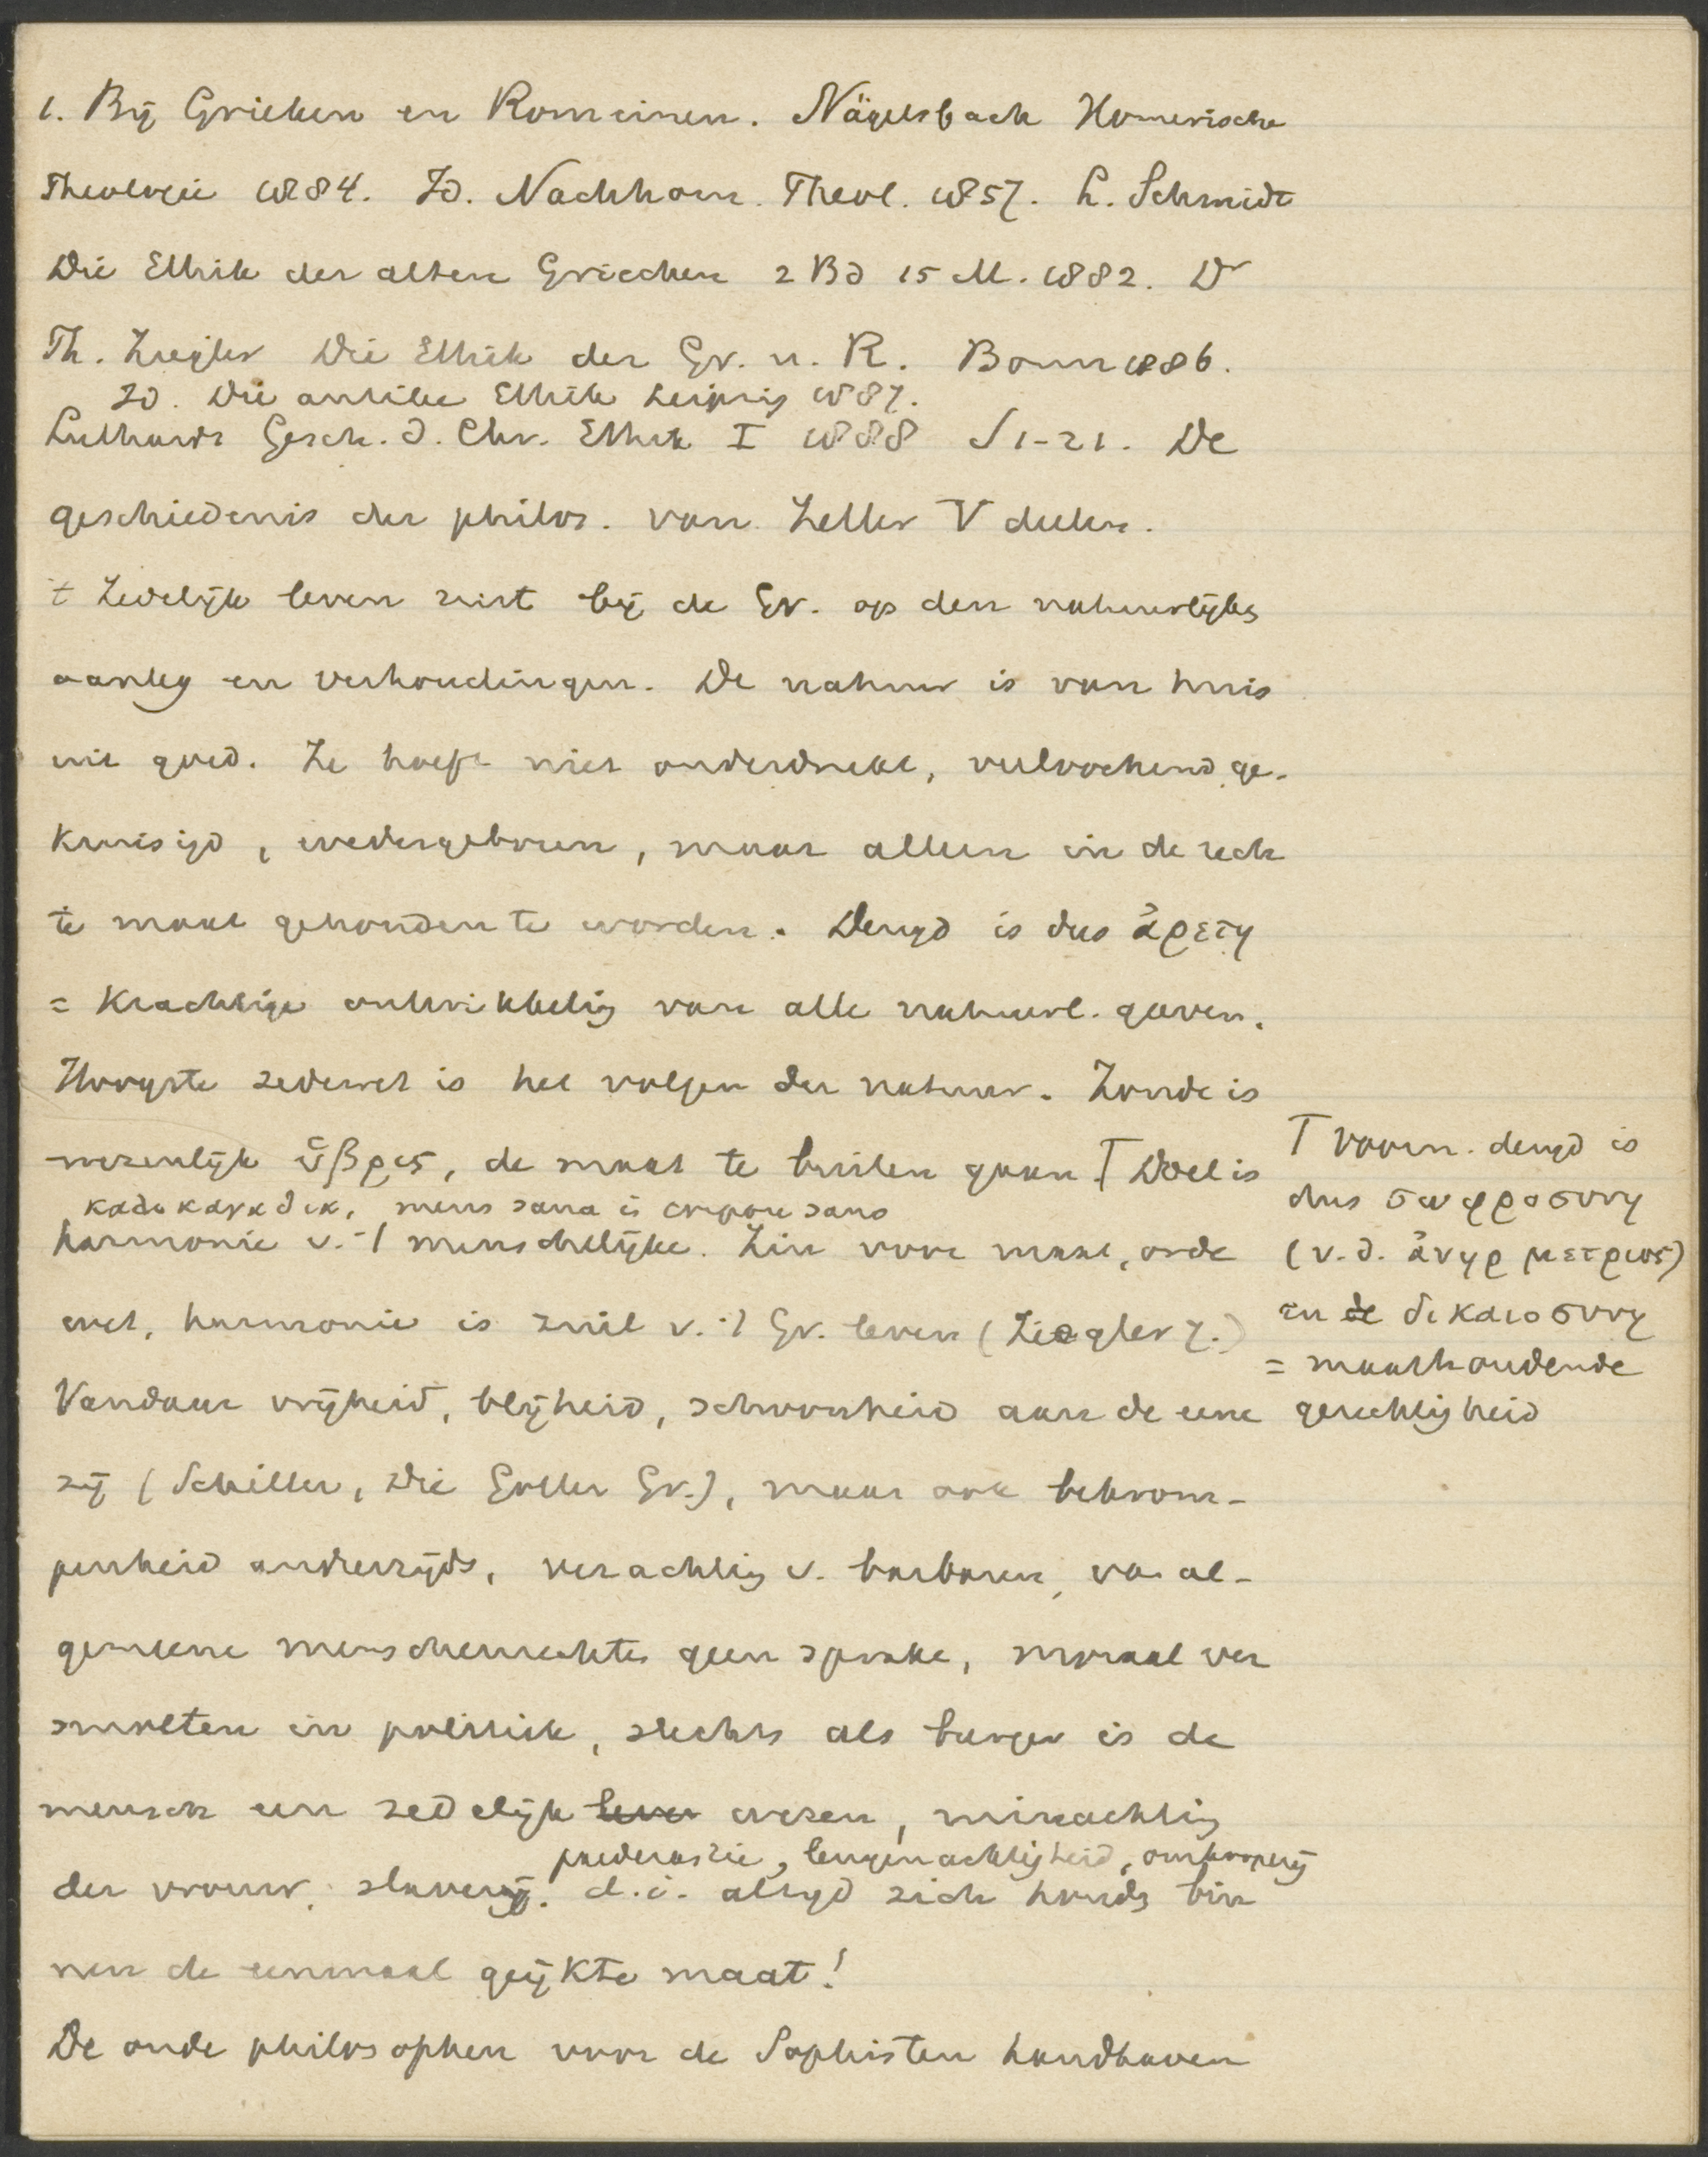 1. Bij Grieken en Romeinen. Nägelsbach Homerische
Theologie 1884. Id. Nachhom. Theol. 1857. L. Schmidt
Die Ethik der alten Griechen 2 Bd 15 M. 1882. Dr
Th. Ziegler Die Ethik der Gr. u. R. Bonn 1886.
Id. Die antike Ethik Leipzig 1887.
Luthardt Gesch. d. Chr. Ethik I 1888 S 1-21. De
geschiedenis der philos. van Zeller V deelen.
't Zedelijk leven rust bij de Gr. op den natuurlijke
aanleg en verhoudingen. De natuur is van huis
uit goed. Ze hoeft niet onderdrukt, verloochend, ge-
kruisigd, wedergeboren, maar alleen in de rech
te maat gehouden te worden. Deugd is dus ἀρετη
= Krachtige ontwikkeling van alle natuurl. gaven.
Hoogste zedewet is het volgen der natuur. Zonde is
wezenlijk ὑβρις, de maat te buiten gaan. ⌈ Doel is
mens sana i corpore sano
harmonie v. 't menschelijke. Zin voor maat, orde
wet, harmonie is ziel v. 't Gr. leven (Ziegler 7.)
Vandaar vrijheid, blijheid, schoonheid aan de eene
zij (Schiller, Die Götter Gr.), maar ook bekrom-
penheid anderzijds, verachting v. barbaren, van al-
gemeene menschenrechten geen sprake, moraal ver
smolten in politiek, slechts als burger is de
mensch een zedelijk leven wezen, minachting
paederastie, leugenachtigheid, omkooperij
der vrouw, slavernij. d.i. altijd zich houdg bin
nen de eenmaal geijkte maat!
De oude philosophen voor de Sophisten handhaven
⌈ Voorn. deugd is
dus σωφροσυνη
(v.d. ἀνηρ μετριος)
en de δικαιοσυνη
= maathoudende
gerechtigheid